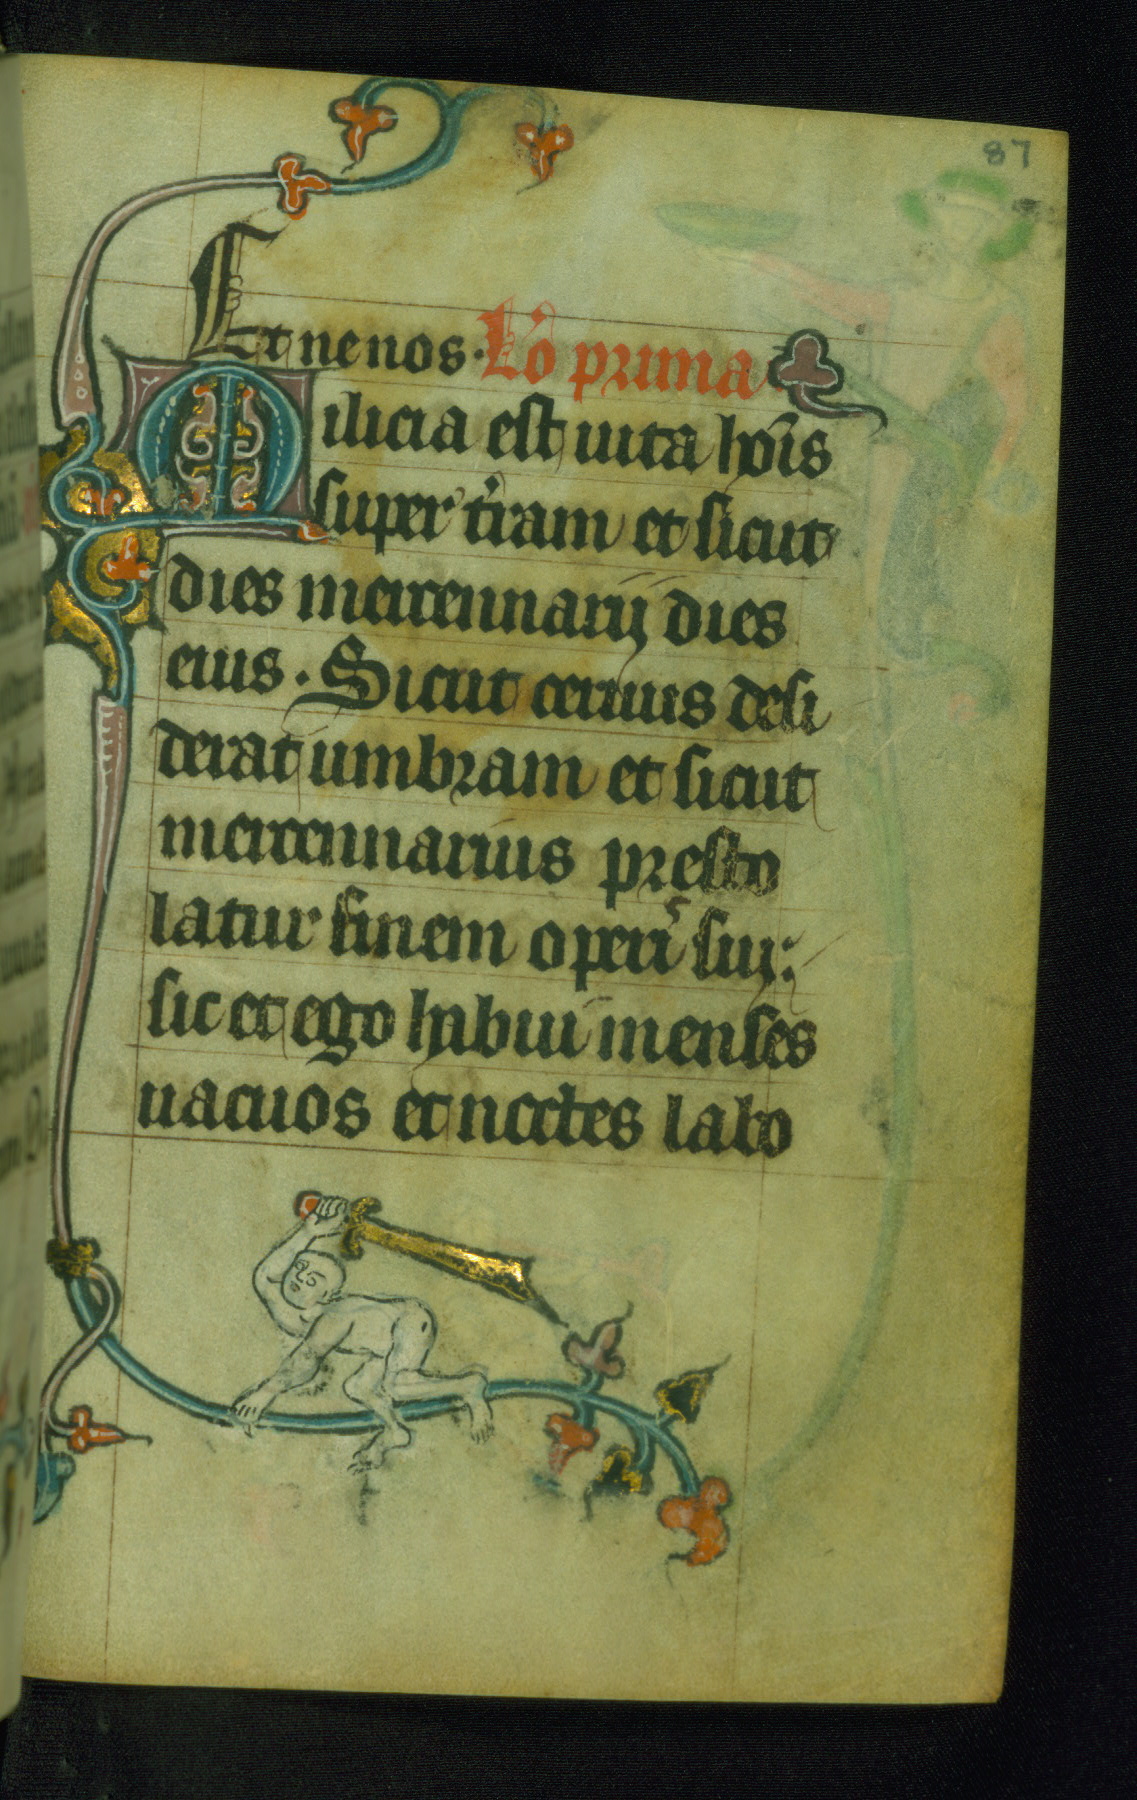 87
Et ne nos. Lc̄o prima
Milicia est uita ho̅is
super t̾ram et sicut
dies mercennarij dies
eius. Sicut ceruus desi
derat umbram et sicut
mercennarius presto
latur finem operis sui:
sic et ego habui menses
uacuos et noctes labo